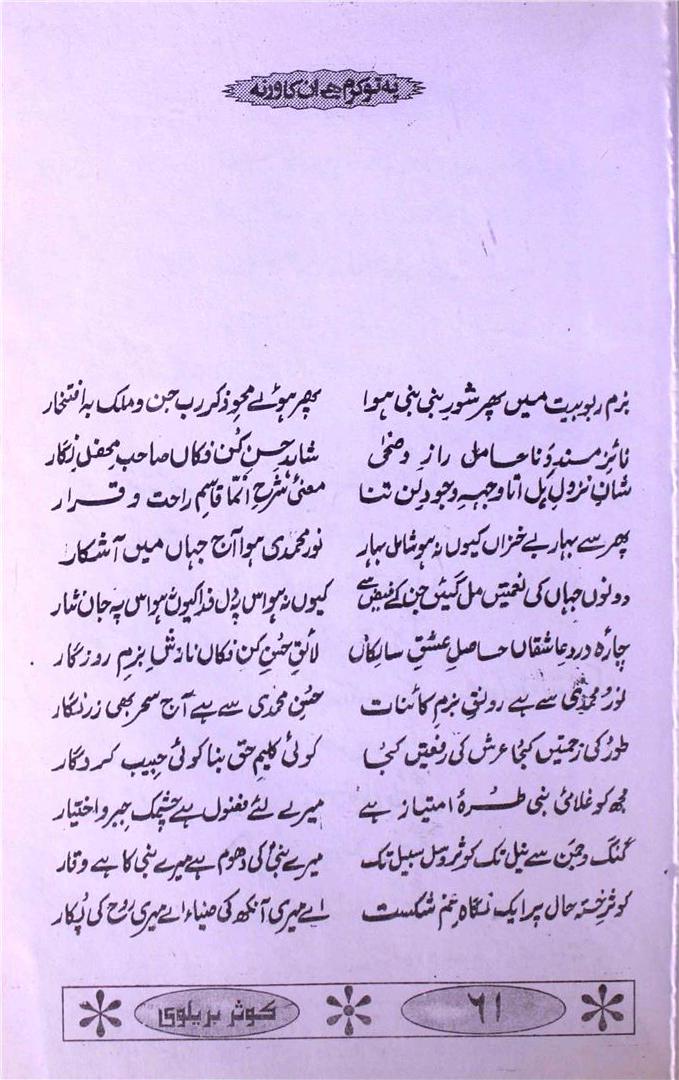 یہ تو کرم ہے ان کا ورنہ
بزم ربوبیت میں پھر شورِ نبی نبی ہوا پھر ہوئے محوِ ذکر رب جن و ملک بہ افتخار
نائزِ مسندِ دَنا حامل رازِ وضحیٰ شاہدِ حسنِ کُن فکاں صاحبِ محفلِ نگار
شانِ نزولِ ہل اتا وجہہِ وجودِ لن تنا معنیٔ شرحِ انّما قاسِم راحت و قرار
پھر سے بہار بے خزاں کیوں نہ ہو شامل بہار نور محمدی ہوا آج جہاں میں آشکار
دونوں جہاں کی نعمتیں مل گئیں جن کے فیض سے کیوں نہ ہو اس پہ دل فدا کیوں نہ ہو اس پہ جاں نثار
چارہ دردِ عاشقاں حاصلِ عشقِ سالکاں لائقِ حُسنِ کن فکاں نازشِ بزمِ روزگار
نورِ محمدی سے ہے رونقِ بزمِ کائنات حسنِ محمدی سے ہے آج سحر بھی زرنگار
طور کی زحمتیں کجا عرش کی رفعتیں کجا کوئی کلیم حق بنا کوئی حبیب کردگار
مجھ کو غلامیٔ نبی طرۂ امتیاز ہے میرے لئے فضول ہے چشمک جبر و اختیار
گنگ و جمن سے نیل تک کوثر و سلسبیل تک میرے نبیؐ کی دھوم ہے میرے نبی کا ہے وقار
کوثرِ خستہ حال پر ایک نگاہِ غم شکست اے میری آنکھ کی ضیاء اے میری روح کی پکار
۶۱
کوثر بریلوی